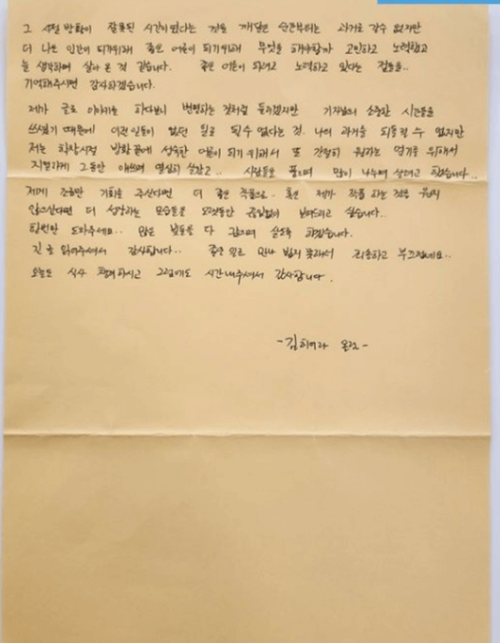 그 시절 방황이 잘못된 시간이었다는 것을 깨달은 순간부터는 과거로 갈수 없지만
더 나은 인간이 되기위해 좋은 어른이 되기위해 무엇을 해야할지 고민하고 노력하고
늘 생각하며 살아 온 것 같습니다. 좋은 어른이 되려고 노력하고 있다는 점들을..
기억해주시면 감사하겠습니다.
제가 글로 이야기를 하다보니 변명하는 것처럼 들리겠지만 기자님의 소중한 시간들을
쓰셨기 때문에 이런 일들이 없던 일로 될수 없다는 것. 나의 과거를 되돌릴 수 없지만
저는 학창시절 방황 끝에 성숙한 어른이 되기 위해서 또 간절히 원하는 연기를 위해서
치열하게 그동안 애쓰며 열심히 살았고.. 사람들을 도우며 많이 나누며 살려고 했습니다..
제게 조금만 기회를 주신다면 더 좋은 작품으로.. 혹은 제가 작품 하는 것을
않으신다면 더 성장하는 모습들을 오랫동안 끊임없이 보여드리고 싶습니다..
한번만 도와주세요.. 많은 분들을 다 살도록 하겠습니다.
긴 글 읽어주셔서 감사합니다.. 좋은 일로 만나 뵙지 못해서 죄송하고 부끄럽네요..
오늘도 식사 하시고 그럼에도 시간내주셔서 감사합니다.
-김히어라 올림-